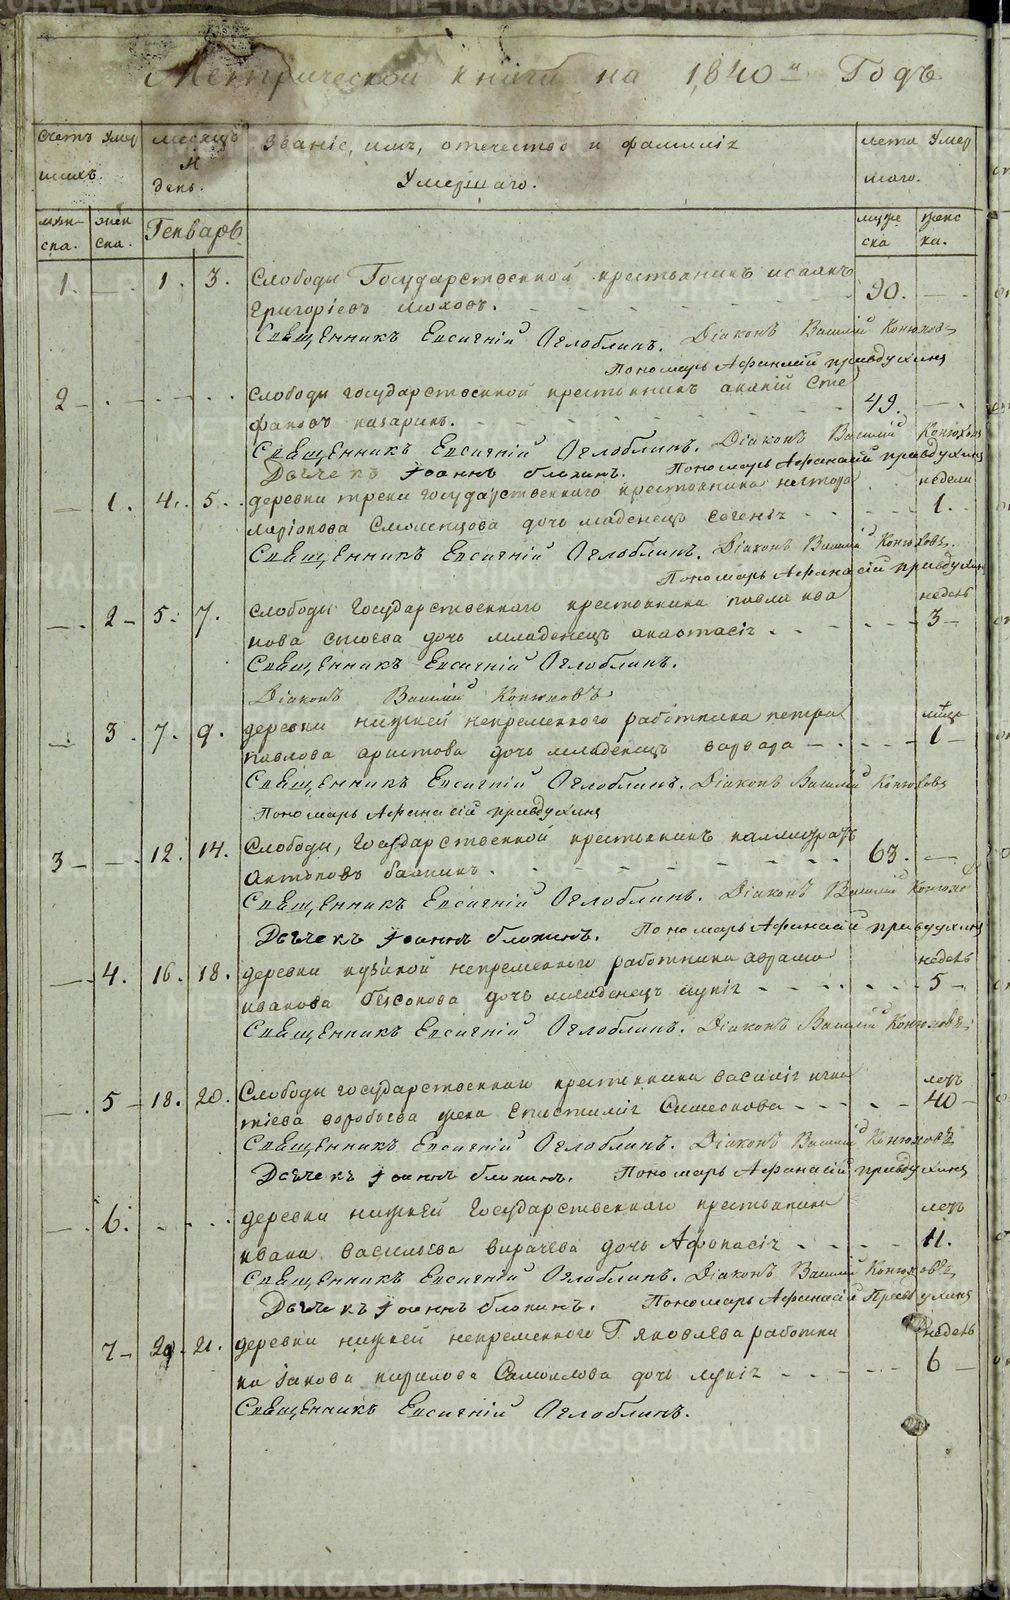 Метрической книги на 1840й Годъ
Счетъ Умер
шихъ.
месяцъ
и
день.
Званіе, имя, отечество и фамилія
Умершаго.
лета Умер
шаго.
муже-
ска.
жен
ска.
Генварь
муже
ска
женс
ка.
1. 1. 3. Слободы Государственной крестьянинъ исаакъ
Григоріевъ 90.
Священникъ Евсигній Оглоблинъ. Діаконъ Василій Конюховъ
Пономарь Афанасій правдухинъ
2 Слободы государственной крестьянинъ ананій Сте
фановъ назаринъ. 49.
Священникъ Евсигній Оглоблинъ. Діаконъ Василій Конюховъ
Дьячекъ Іоаннъ блохинъ. Пономарь Афанасій правдухинъ
1. 4. 5. деревни треки государственнаго крестьянина нестора недели
ларіонова дочь младенецъ евгенія 1.
Священникъ Евсигній Оглоблинъ. Діаконъ Василій Конюховъ.
Пономарь Афанасій правдухинъ
2 5. 7. Слободы Государственнаго крестьянина павла ива недель
нова сысоева дочь младенецъ анастасія 3
Священникъ Евсигній Оглоблинъ.
Діаконъ Василій Конюховъ
3. 7. 9. деревни нижней непременнаго работника петра
павлова аристова дочь младенецъ варвара 1
Священникъ Евсигній Оглоблинъ. Діаконъ Василій Конюховъ
Пономарь Афанасій правдухинъ
3 12. 14. Слободы, Государственной крестьянинъ каллистратъ
Антоновъ 63.
Священникъ Евсигній Оглоблинъ. Діаконъ Василій Конюхов
Дьячекъ Іоаннъ блохинъ. Пономарь Афанасій правдухинъ
4. 16. 18. деревни непременнаго работника аврама недель
иванова дочь младенецъ 5
Священникъ Евсигній Оглоблинъ. Діаконъ Василій Конюховъ
5 18. 20. Слободы государственнаго крестьянина василія игна летъ
тіева воробьева жена Епистимія Симеонова 40
Священникъ Евсигній Оглоблинъ. Діаконъ Василій Конюховъ
Дьячекъ Іоаннъ блохинъ. Пономарь Афанасій правдухинъ
6. деревни нижней Государственнаго крестьянина летъ
ивана васильева дочь Афонасія 11.
Священникъ Евсигній Оглоблинъ. Діаконъ Василій Конюховъ
Дьячекъ Іоаннъ блохинъ. Пономарь Афанасій Правдухинъ
7 20 21. деревни нижней непременнаго Г. яковлева работни недель
ка іакова кирилова Самоилова дочь 6
Священникъ Евсигній Оглоблинъ.
METRIKI.GASO-URAL.RU